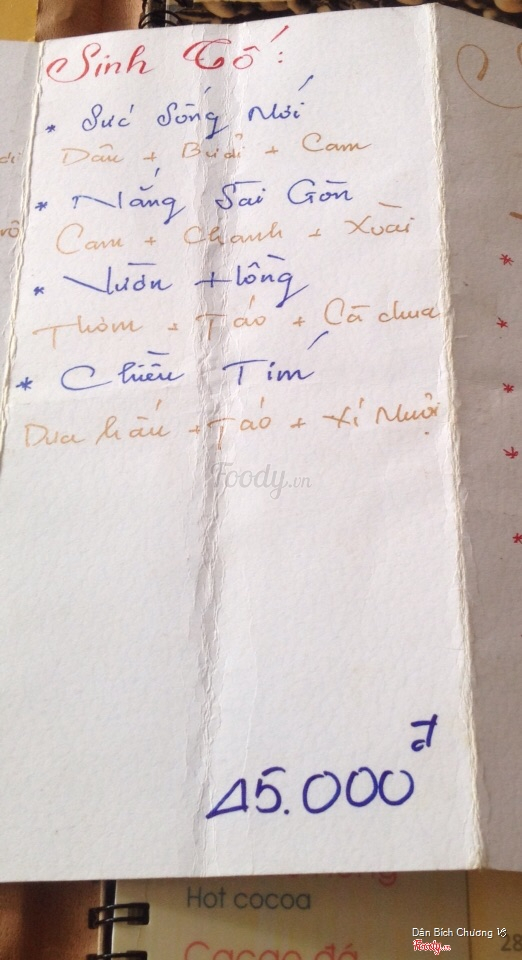 Sinh Tố:
* Sức Sống Mới
Dâu + Bưởi + Cam
* Nắng Sài Gòn
Cam + Chanh + Xoài
* Vườn Hồng
Thơm + Táo + Cà chua
* Chiều Tím
Dưa hấu + Táo + Xí Muội
Foody.vn
45.000đ
Hot cocoa
Cacao đá
28
Dân Bích Chương 16
Foody.vn